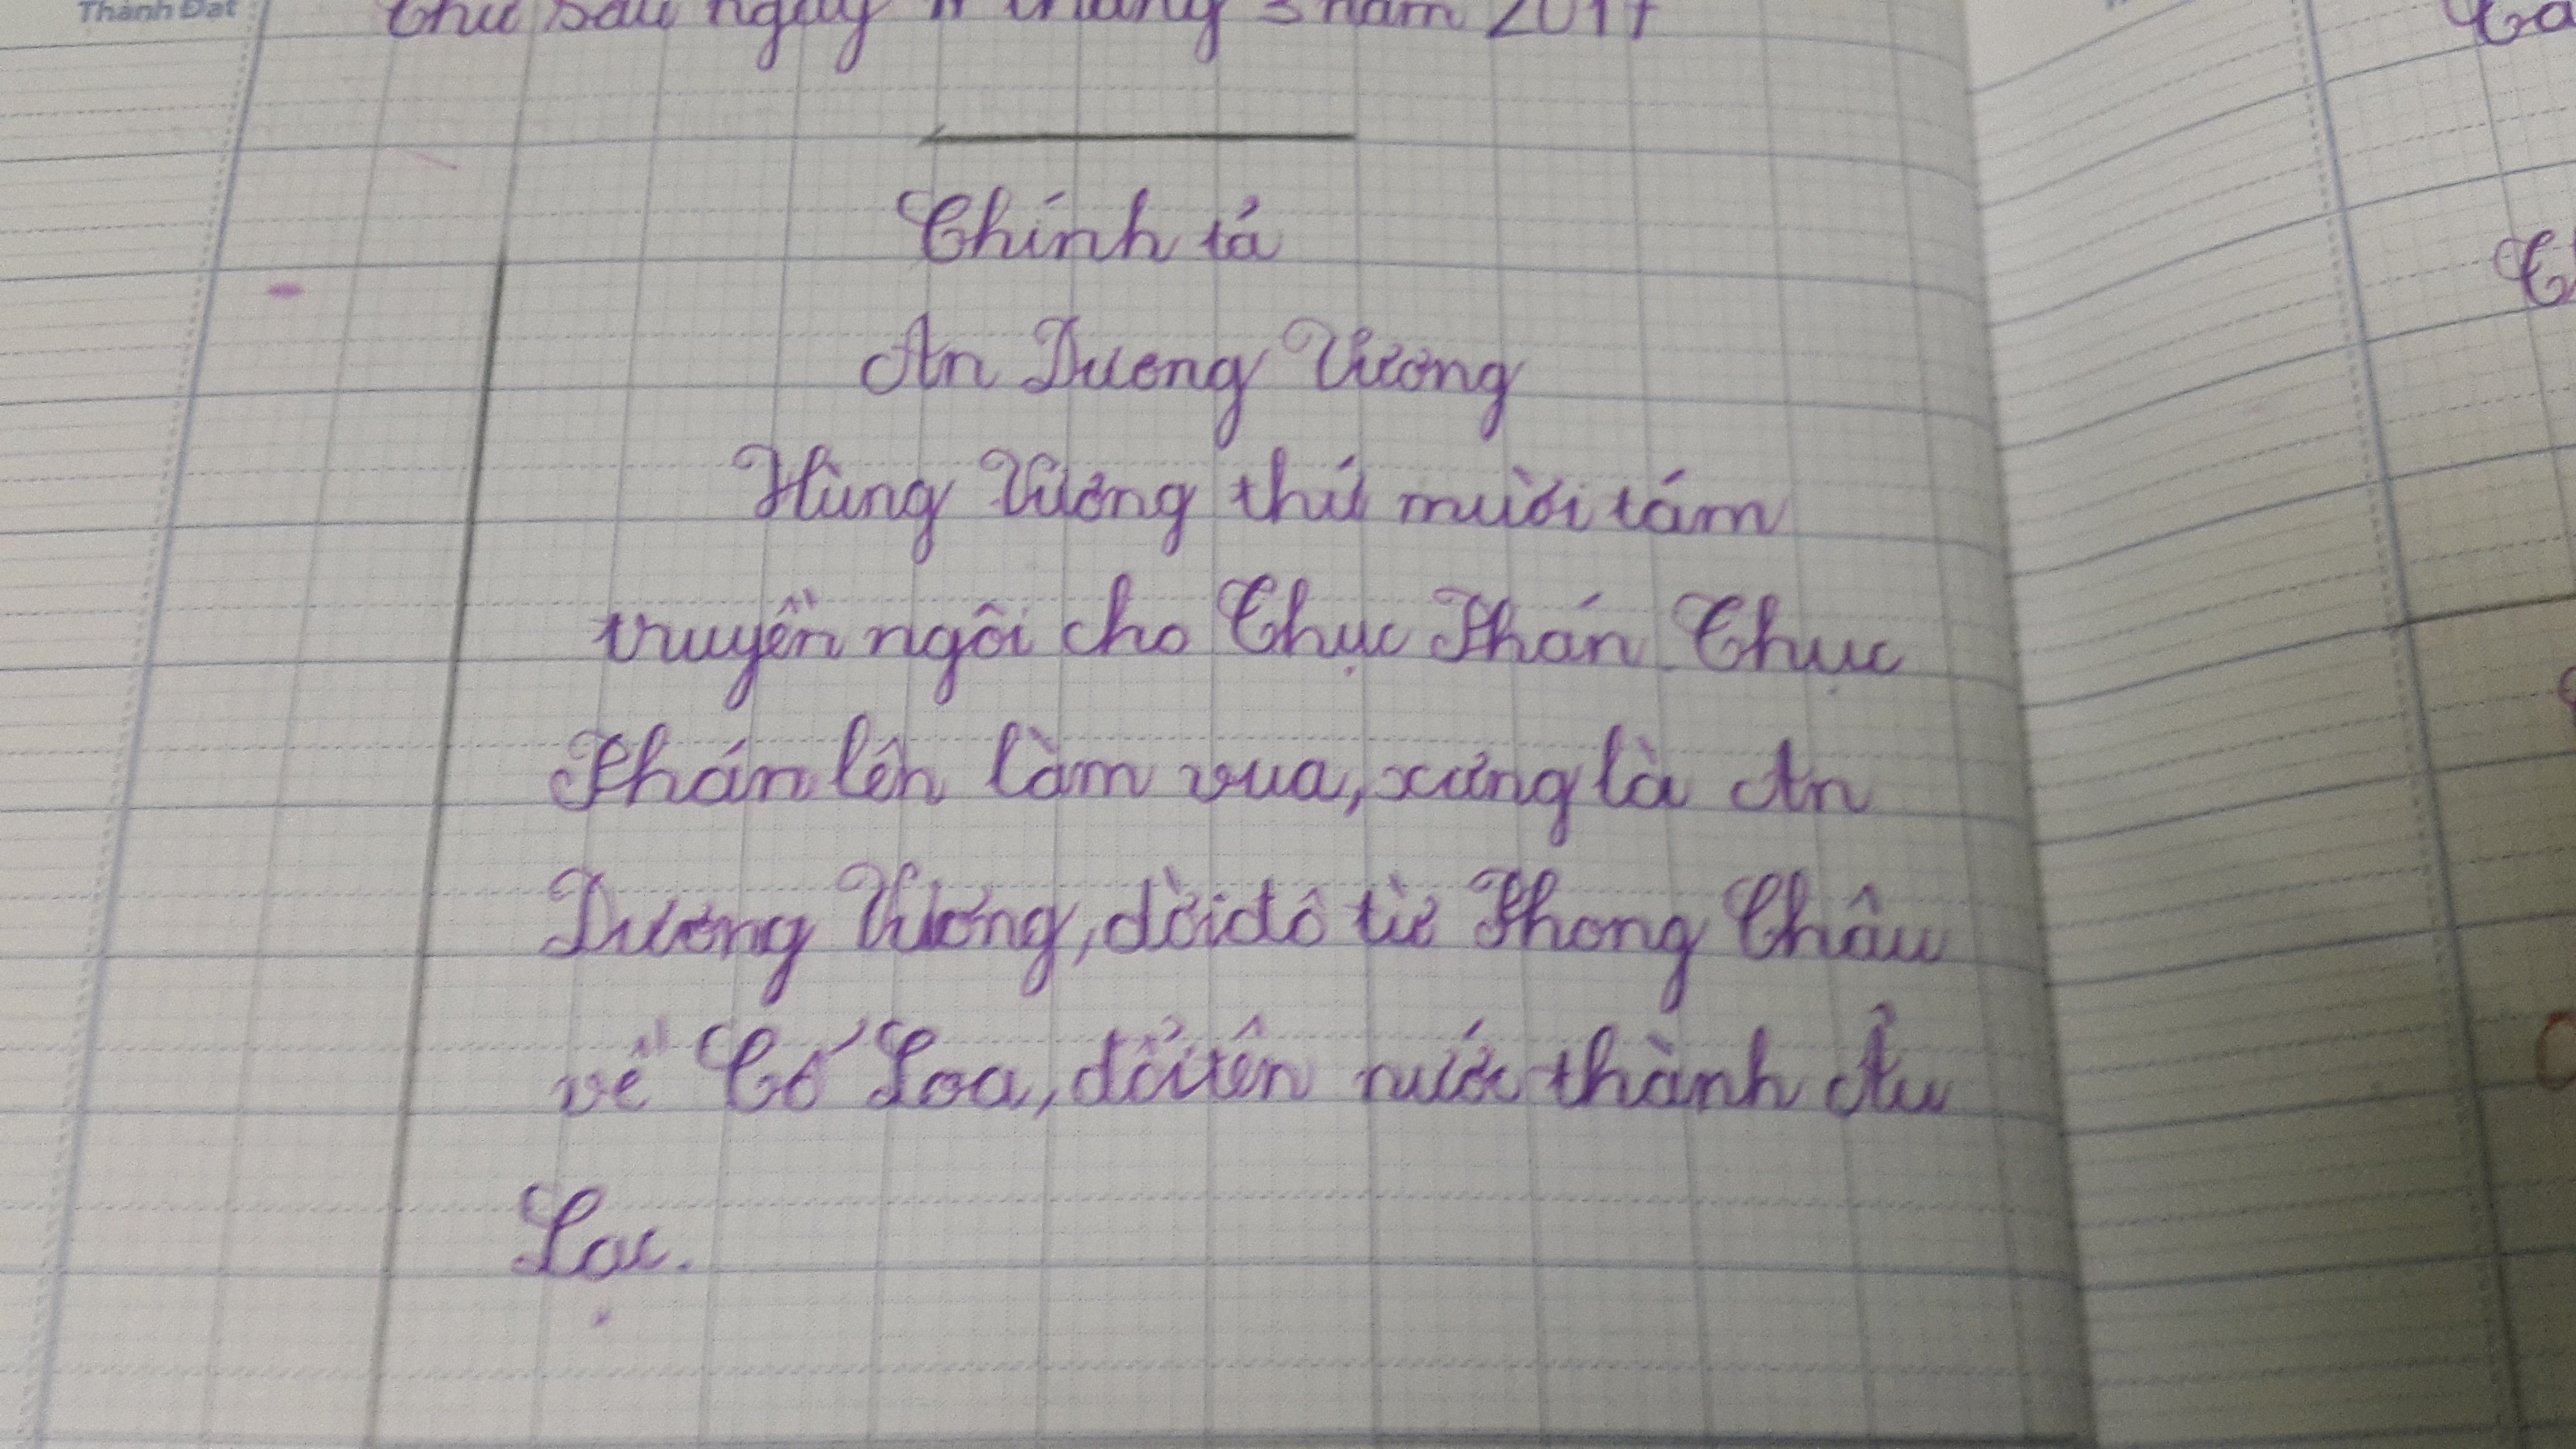 Thành Đạt
Thứ sáu ngày tháng 3 năm 2017
Chính tả
An Dương Vương
Hùng Vương thứ mười tám
truyền ngôi cho Thục Phán. Thục
Phán lên làm vua, xưng là An
Dương Vương, dời đô từ Phong Châu
về Cổ Loa, đổi tên nước thành Âu
Lạc.